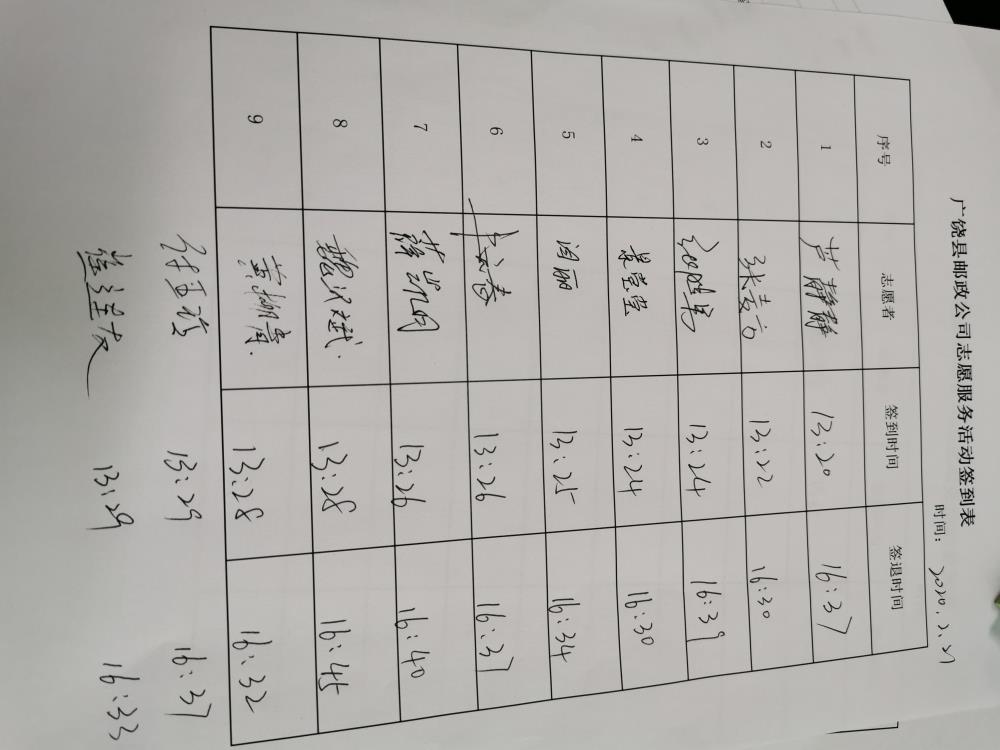 广饶县邮政公司志愿服务活动签到表
时间: 2020.2.27
序号 志愿者 签到时间 签退时间
1 芦静静 13:20 16:37
2 张麦方 13:22 16:30
3 13:24 16:39
4 景莹莹 13:24 16:30
5 闫丽 13:25 16:34
6 13:26 16:37
7 薛岩岗 13:26 16:40
8 魏汉斌 13:28 16:45
9 13:28 16:32
13:29 16:37
13:29 16:33